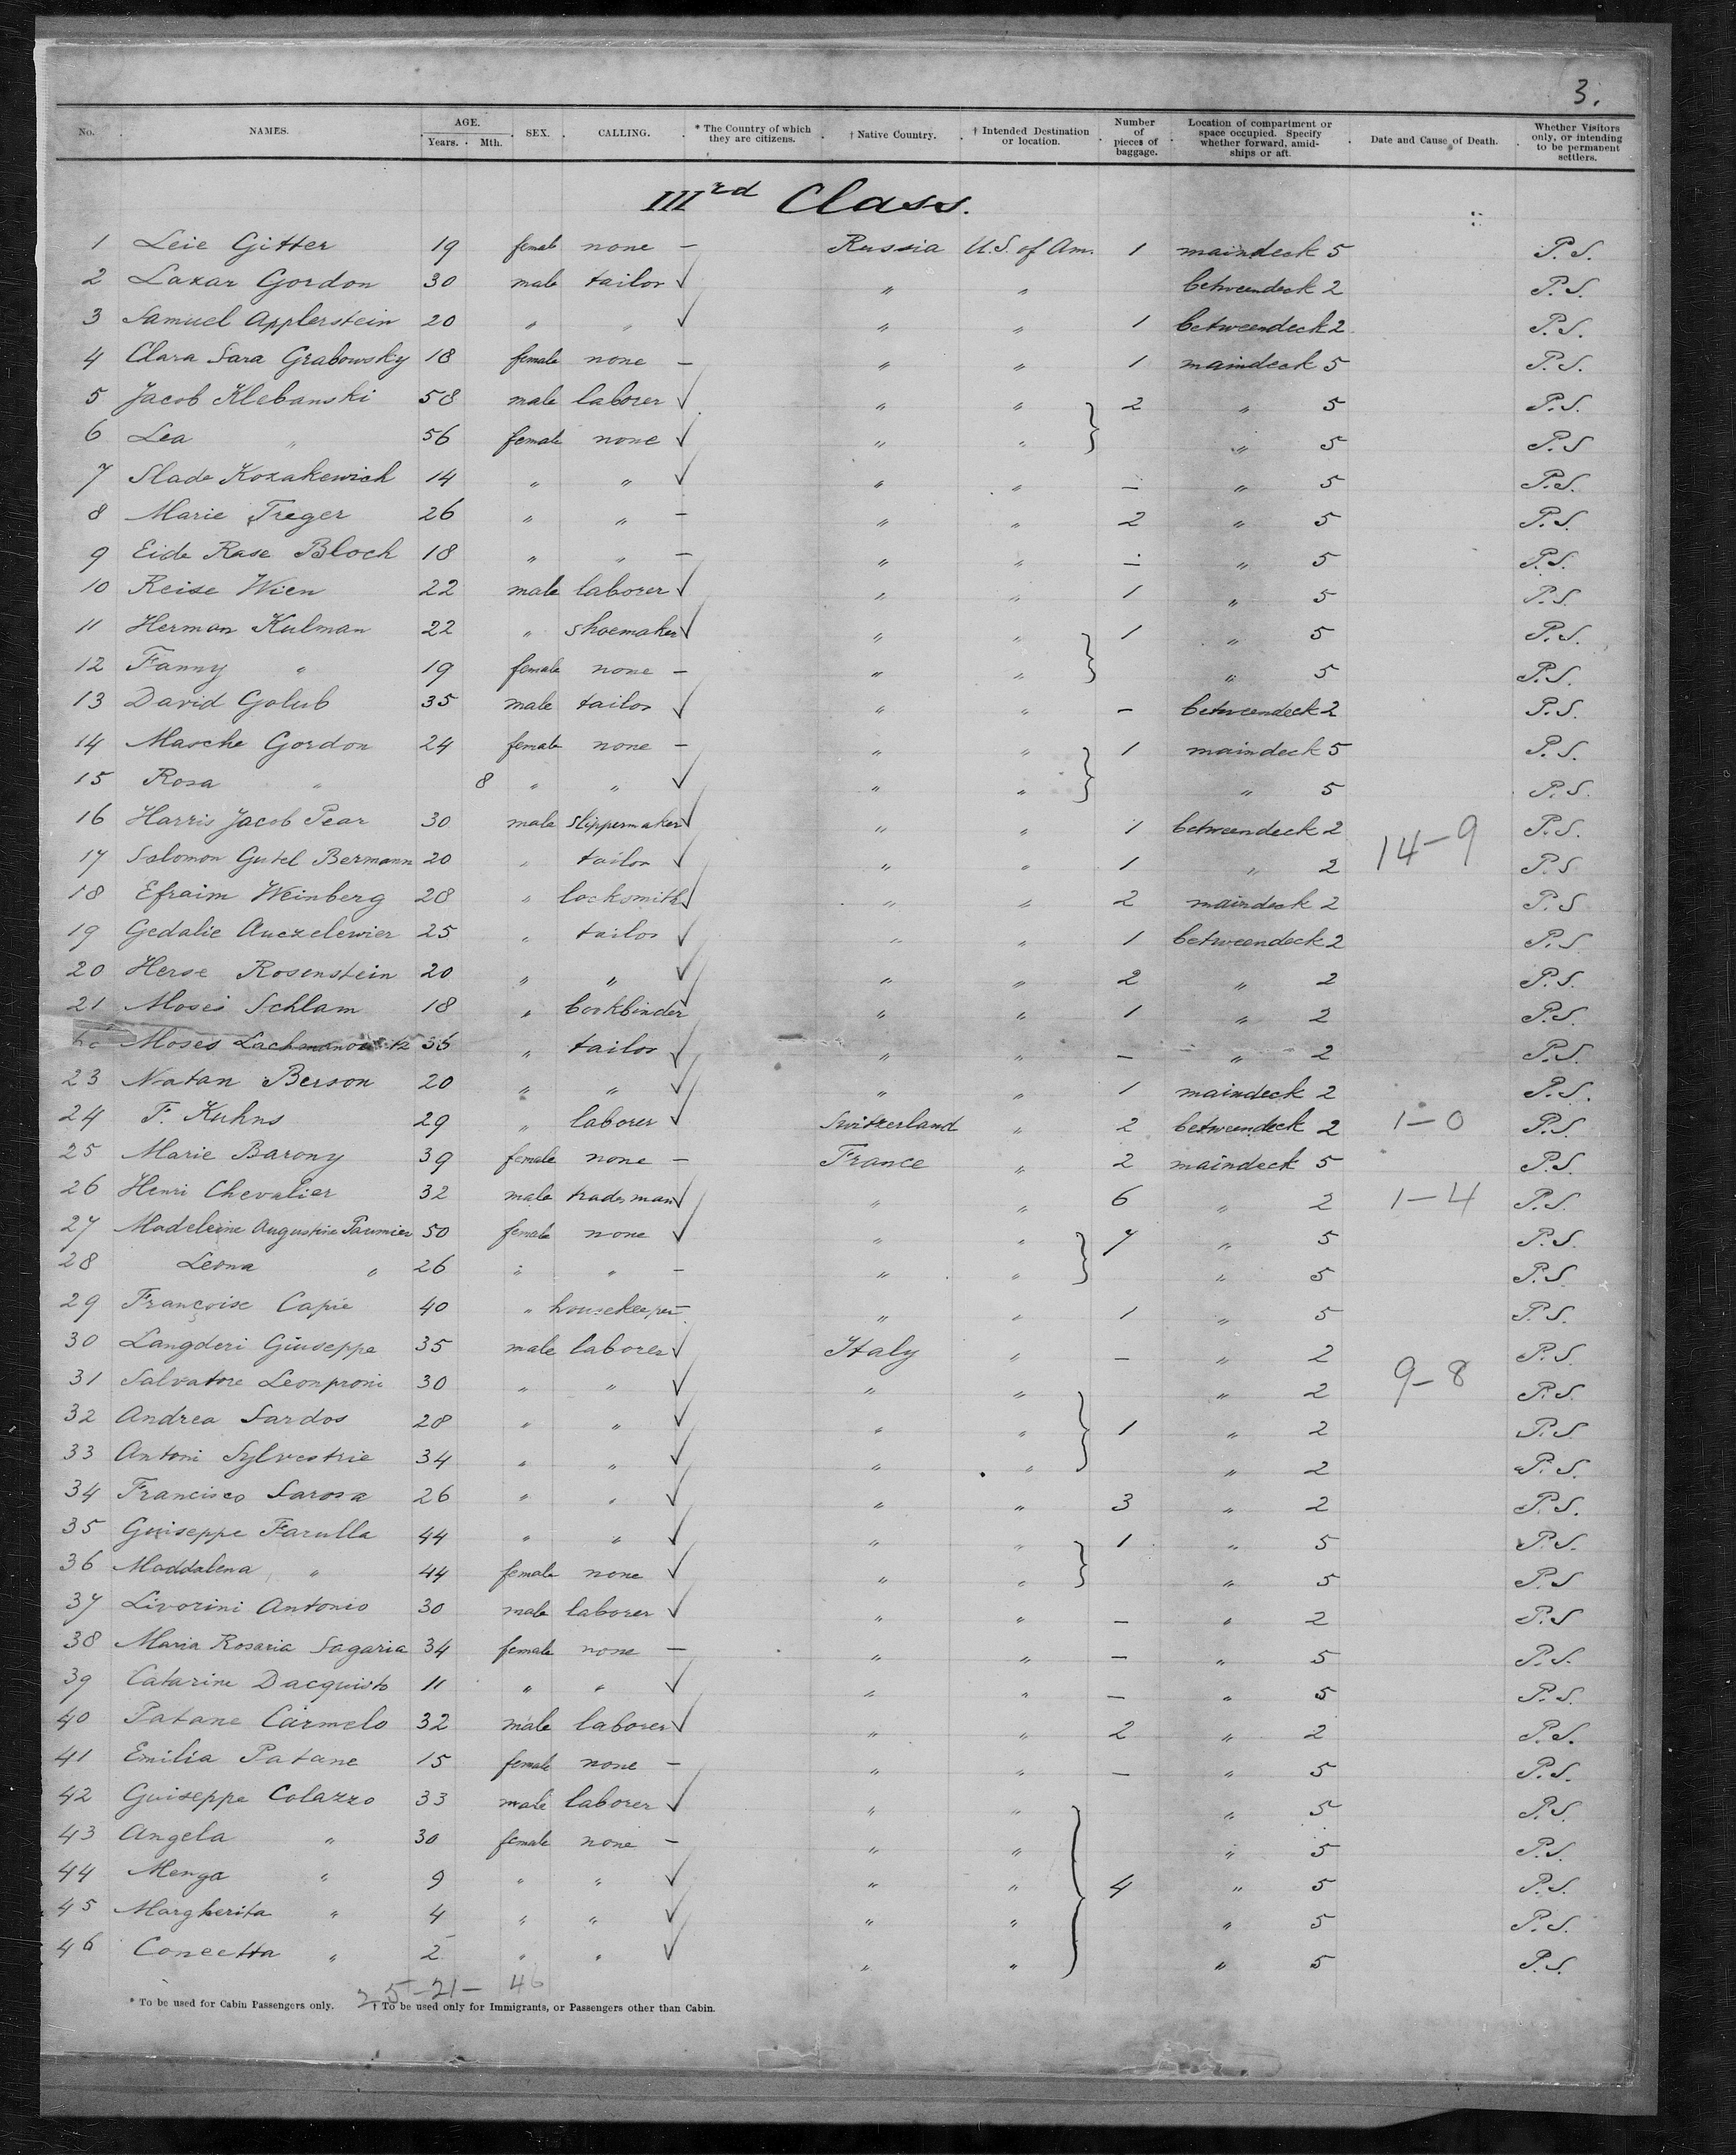 3.
No. NAMES. AGE. Years. Mth. SEX. CALLING. * The Country of which they are citizens. † Native Country. † Intended Destination or location. Number of pieces of baggage. Location of compartment or space occupied. Specify whether forward, amidships or aft. Date and Cause of Death. Whether Visitors only, or intending to be permanent settlers.
IIIrd Class.
1 Leie Gitter 19 female none — Russia U.S. of Am. 1 maindeck 5 P.S.
2 Lazar Gordon 30 male tailor ✓ " " betweendeck 2 P.S.
3 Samuel Applerstein 20 " " ✓ " " 1 betweendeck 2 P.S.
4 Clara Sara Grabowsky 18 female none — " " 1 maindeck 5 P.S.
5 Jacob Klebanski 58 male laborer ✓ " " } 2 " 5 P.S.
6 Lea " 56 female none ✓ " " " 5 P.S
7 Slade Kozakewich 14 " " ✓ " " — " 5 P.S.
8 Marie Treger 26 " " — " " 2 " 5 P.S.
9 Eide Rase Bloch 18 " " — " " — " 5 P.S.
10 Reise Wien 22 male laborer ✓ " " 1 " 5 P.S.
11 Herman Kulman 22 " shoemaker ✓ " " } 1 " 5 P.S.
12 Fanny " 19 female none — " " " 5 P.S.
13 David Golub 35 male tailor ✓ " " — betweendeck 2 P.S.
14 Masche Gordon 24 female none — " " } 1 maindeck 5 P.S.
15 Rosa " 8 " " ✓ " " " 5 P.S.
16 Harris Jacob Pear 30 male slippermaker ✓ " " 1 betweendeck 2 14-9 P.S.
17 Solomon Gutel Bermann 20 " tailor ✓ " " 1 " 2 P.S
18 Efraim Weinberg 28 " locksmith ✓ " " 2 maindeck 2 P.S
19 Gedalie Auczelewier 25 " tailor ✓ " " 1 betweendeck 2 P.S
20 Herse Rosenstein 20 " " ✓ " " 2 " 2 P.S.
21 Moses Schlam 18 " bookbinder ✓ " " 1 " 2 P.S.
Moses Lachmanowitz 36 " tailor ✓ " " — " 2 P.S.
23 Natan Berson 20 " " ✓ " " 1 maindeck 2 P.S.
24 F. Kuhns 29 " laborer ✓ Switzerland " 2 betweendeck 2 1-0 P.S.
25 Marie Barony 39 female none — France " 2 maindeck 5 P.S.
26 Henri Chevalier 32 male tradesman ✓ " " 6 " 2 1-4 P.S.
27 Madeleine Augustine Paumier 50 female none ✓ " " } 7 " 5 P.S.
28 Leona " 26 " " — " " " 5 P.S.
29 Françoise Capie 40 " housekeeper — " " 1 " 5 P.S.
30 Langderi Giuseppe 35 male laborer ✓ Italy " — " 2 P.S.
31 Salvatore Leonproni 30 " " ✓ " " } " 2 9-8 P.S.
32 Andrea Sardos 28 " " ✓ " " 1 " 2 P.S
33 Antoni Sylvestrie 34 " " ✓ " " " 2 P.S.
34 Francisco Sarosa 26 " " ✓ " " 3 " 2 P.S.
35 Guiseppe Farulla 44 " " ✓ " " } 1 " 5 P.S.
36 Maddalena " 44 female none ✓ " " " 5 P.S
37 Livorini Antonio 30 male laborer ✓ " " — " 2 P.S
38 Maria Rosaria Sagaria 34 female none — " " — " 5 P.S.
39 Catarine Dacquisto 11 " " ✓ " " — " 5 P.S.
40 Patane Carmelo 32 male laborer ✓ " " 2 " 2 P.S.
41 Emilia Patane 15 female none — " " — " 5 P.S.
42 Guiseppe Colazzo 33 male laborer ✓ " " } " 5 P.S.
43 Angela " 30 female none — " " " 5 P.S.
44 Menga " 9 " " ✓ " " 4 " 5 P.S.
45 Margherita " 4 " " ✓ " " " 5 P.S.
46 Concetta " 2 " " ✓ " " " 5 P.S.
25-21- 46
* To be used for Cabin Passengers only. † To be used only for Immigrants, or Passengers other than Cabin.